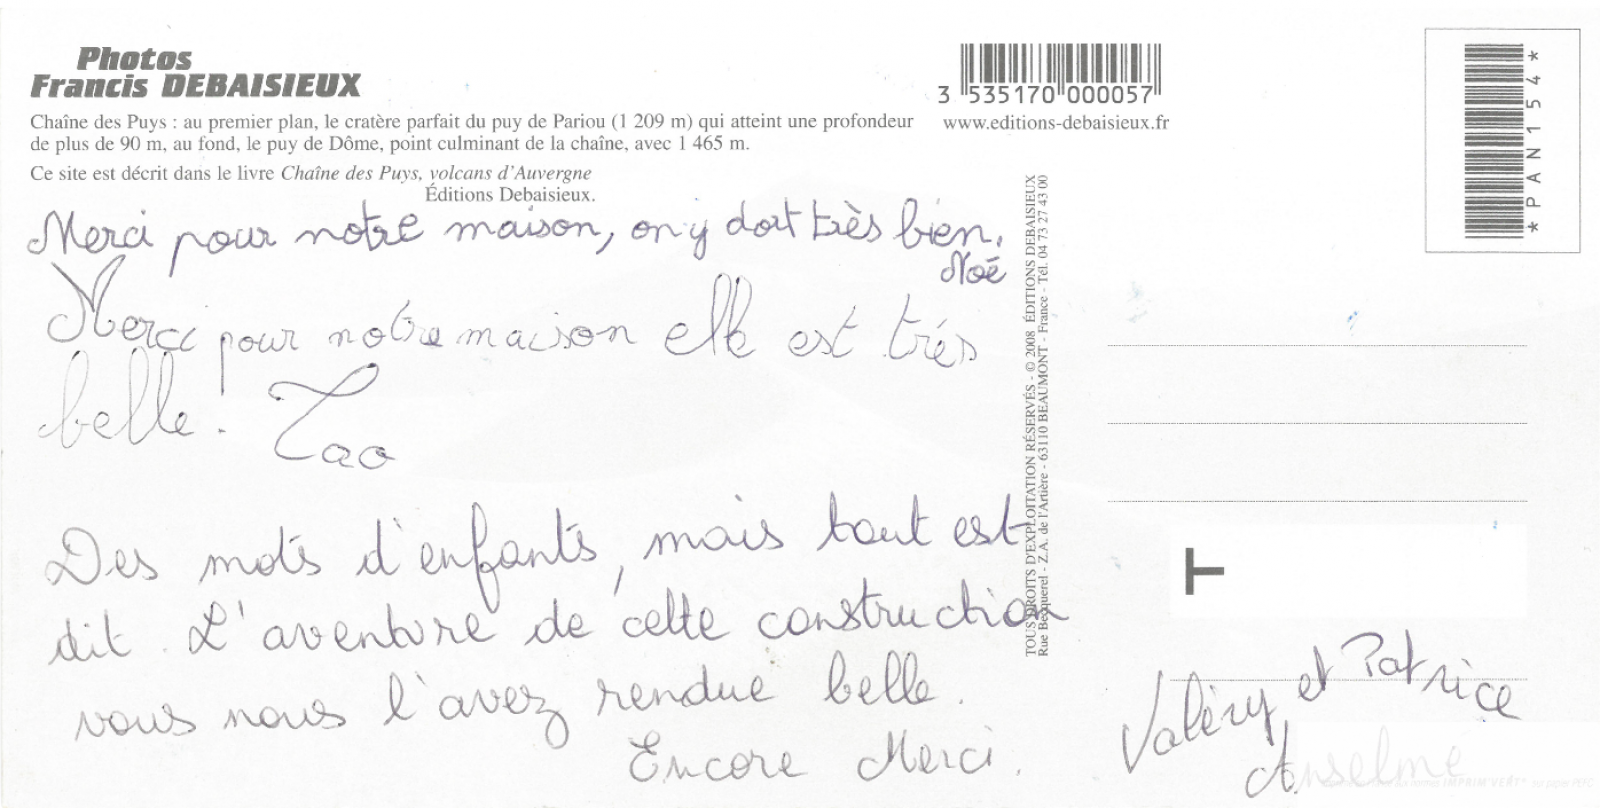 Photos
Francis DEBAISIEUX
Chaîne des Puys : au premier plan, le cratère parfait du puy de Pariou (1 209 m) qui atteint une profondeur
de plus de 90 m, au fond, le puy de Dôme, point culminant de la chaîne, avec 1 465 m.
Ce site est décrit dans le livre Chaîne des Puys, volcans d'Auvergne
Éditions Debaisieux.
3 535170 000057
www.editions-debaisieux.fr
*PAN154*
Merci pour notre maison, on y dort très bien.
Noé
Merci pour notre maison elle est trés
belle. Tao
Des mots d'enfants, mais tout est
dit. L'aventure de cette construction
vous nous l'avez rendue belle.
Encore Merci.
TOUS DROITS D'EXPLOITATION RÉSERVÉS - © 2008 ÉDITIONS DEBAISIEUX
Rue Becquerel - Z.A. de l'Artière - 63110 BEAUMONT - France - Tél. 04 73 27 43 00
T
Valéry et Patrice
Anselme
IMPRIM'VERT®